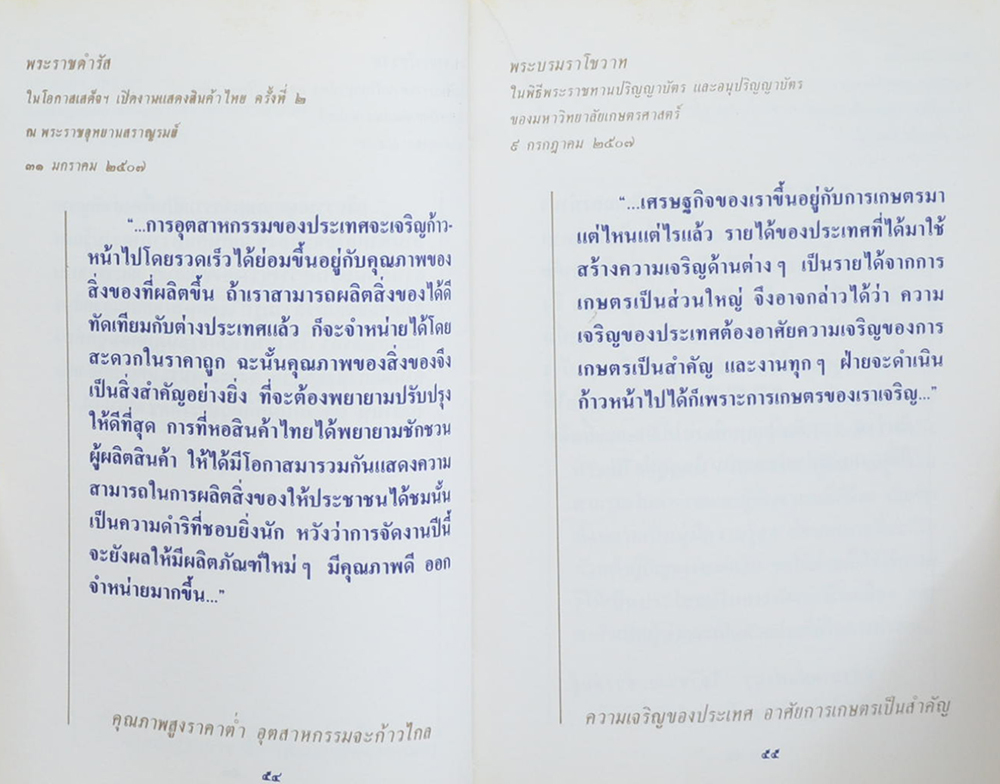 พระราชดำรัส
ในโอกาสเสด็จฯ เปิดงานแสดงสินค้าไทย ครั้งที่ ๒
ณ พระราชอุทยานสราญรมย์
๓๑ มกราคม ๒๕๐๗
“...การอุตสาหกรรมของประเทศจะเจริญก้าว-
หน้าไปโดยรวดเร็วได้ย่อมขึ้นอยู่กับคุณภาพของ
สิ่งของที่ผลิตขึ้น ถ้าเราสามารถผลิตสิ่งของได้ดี
ทัดเทียมกับต่างประเทศแล้ว ก็จะจำหน่ายได้โดย
สะดวกในราคาถูก ฉะนั้นคุณภาพของสิ่งของจึง
เป็นสิ่งสำคัญอย่างยิ่ง ที่จะต้องพยายามปรับปรุง
ให้ดีที่สุด การที่หอสินค้าไทยได้พยายามชักชวน
ผู้ผลิตสินค้า ให้ได้มีโอกาสมารวมกันแสดงความ
สามารถในการผลิตสิ่งของให้ประชาชนได้ชมนั้น
เป็นความดำริที่ชอบยิ่งนัก หวังว่าการจัดงานปีนี้
จะยังผลให้มีผลิตภัณฑ์ใหม่ ๆ มีคุณภาพดี ออก
จำหน่ายมากขึ้น...”
คุณภาพสูงราคาต่ำ อุตสาหกรรมจะก้าวไกล
๕๔
พระบรมราโชวาท
ในพิธีพระราชทานปริญญาบัตร และอนุปริญญาบัตร
ของมหาวิทยาลัยเกษตรศาสตร์
๙ กรกฎาคม ๒๕๐๗
“...เศรษฐกิจของเราขึ้นอยู่กับการเกษตรมา
แต่ไหนแต่ไรแล้ว รายได้ของประเทศที่ได้มาใช้
สร้างความเจริญด้านต่าง ๆ เป็นรายได้จากการ
เกษตรเป็นส่วนใหญ่ จึงอาจกล่าวได้ว่า ความ
เจริญของประเทศต้องอาศัยความเจริญของการ
เกษตรเป็นสำคัญ และงานทุก ๆ ฝ่ายจะดำเนิน
ก้าวหน้าไปได้ก็เพราะการเกษตรของเราเจริญ...”
ความเจริญของประเทศ อาศัยการเกษตรเป็นสำคัญ
๕๕